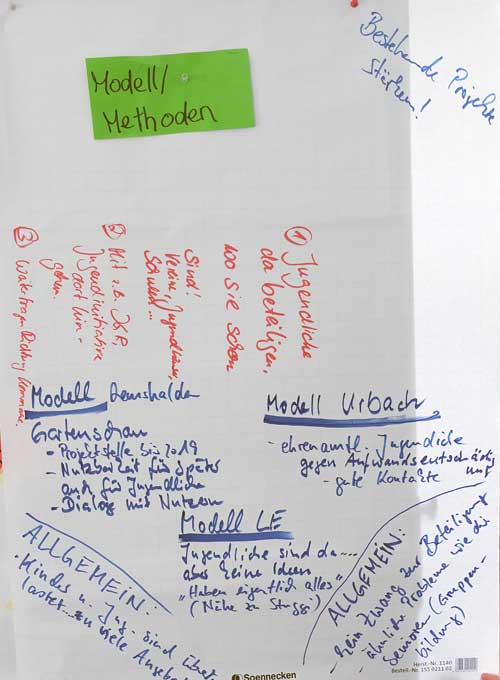 Modell/
Methoden
Bestehende Projekte
Stärken!
① Jugendliche
da beteiligen,
wo sie schon
sind!
Vereine, Jugendhäuser,
Schule...
② Mit z.B. JGR,
Jugendinitiative
dort hin-
gehen.
③ Weitertragen Richtung Kommune.
Modell Remshalden
Gartenschau
- Projektstelle bis 2019
- Nutzbarkeit für später
auch für Jugendliche
- Dialog mit Nutzern
Modell Urbach
- ehrenamtl. Jugendliche
gegen Aufwandsentschädig
ung
- gute Kontakte
Modell LE
Jugendliche sind da...
aber keine Ideen
"Haben eigentlich alles"
(Nähe zu Stuggi)
ALLGEMEIN:
- Kindes u. Jug. sind über
lastet... zu viele Angebo
ALLGEMEIN:
kein Zwang zur Beteiligung
- ähnliche Probleme wie die
Senioren (Gruppen-
bildung)
Soennecken
Herst.-Nr. 1140
Bestell-Nr. 155 0211 02